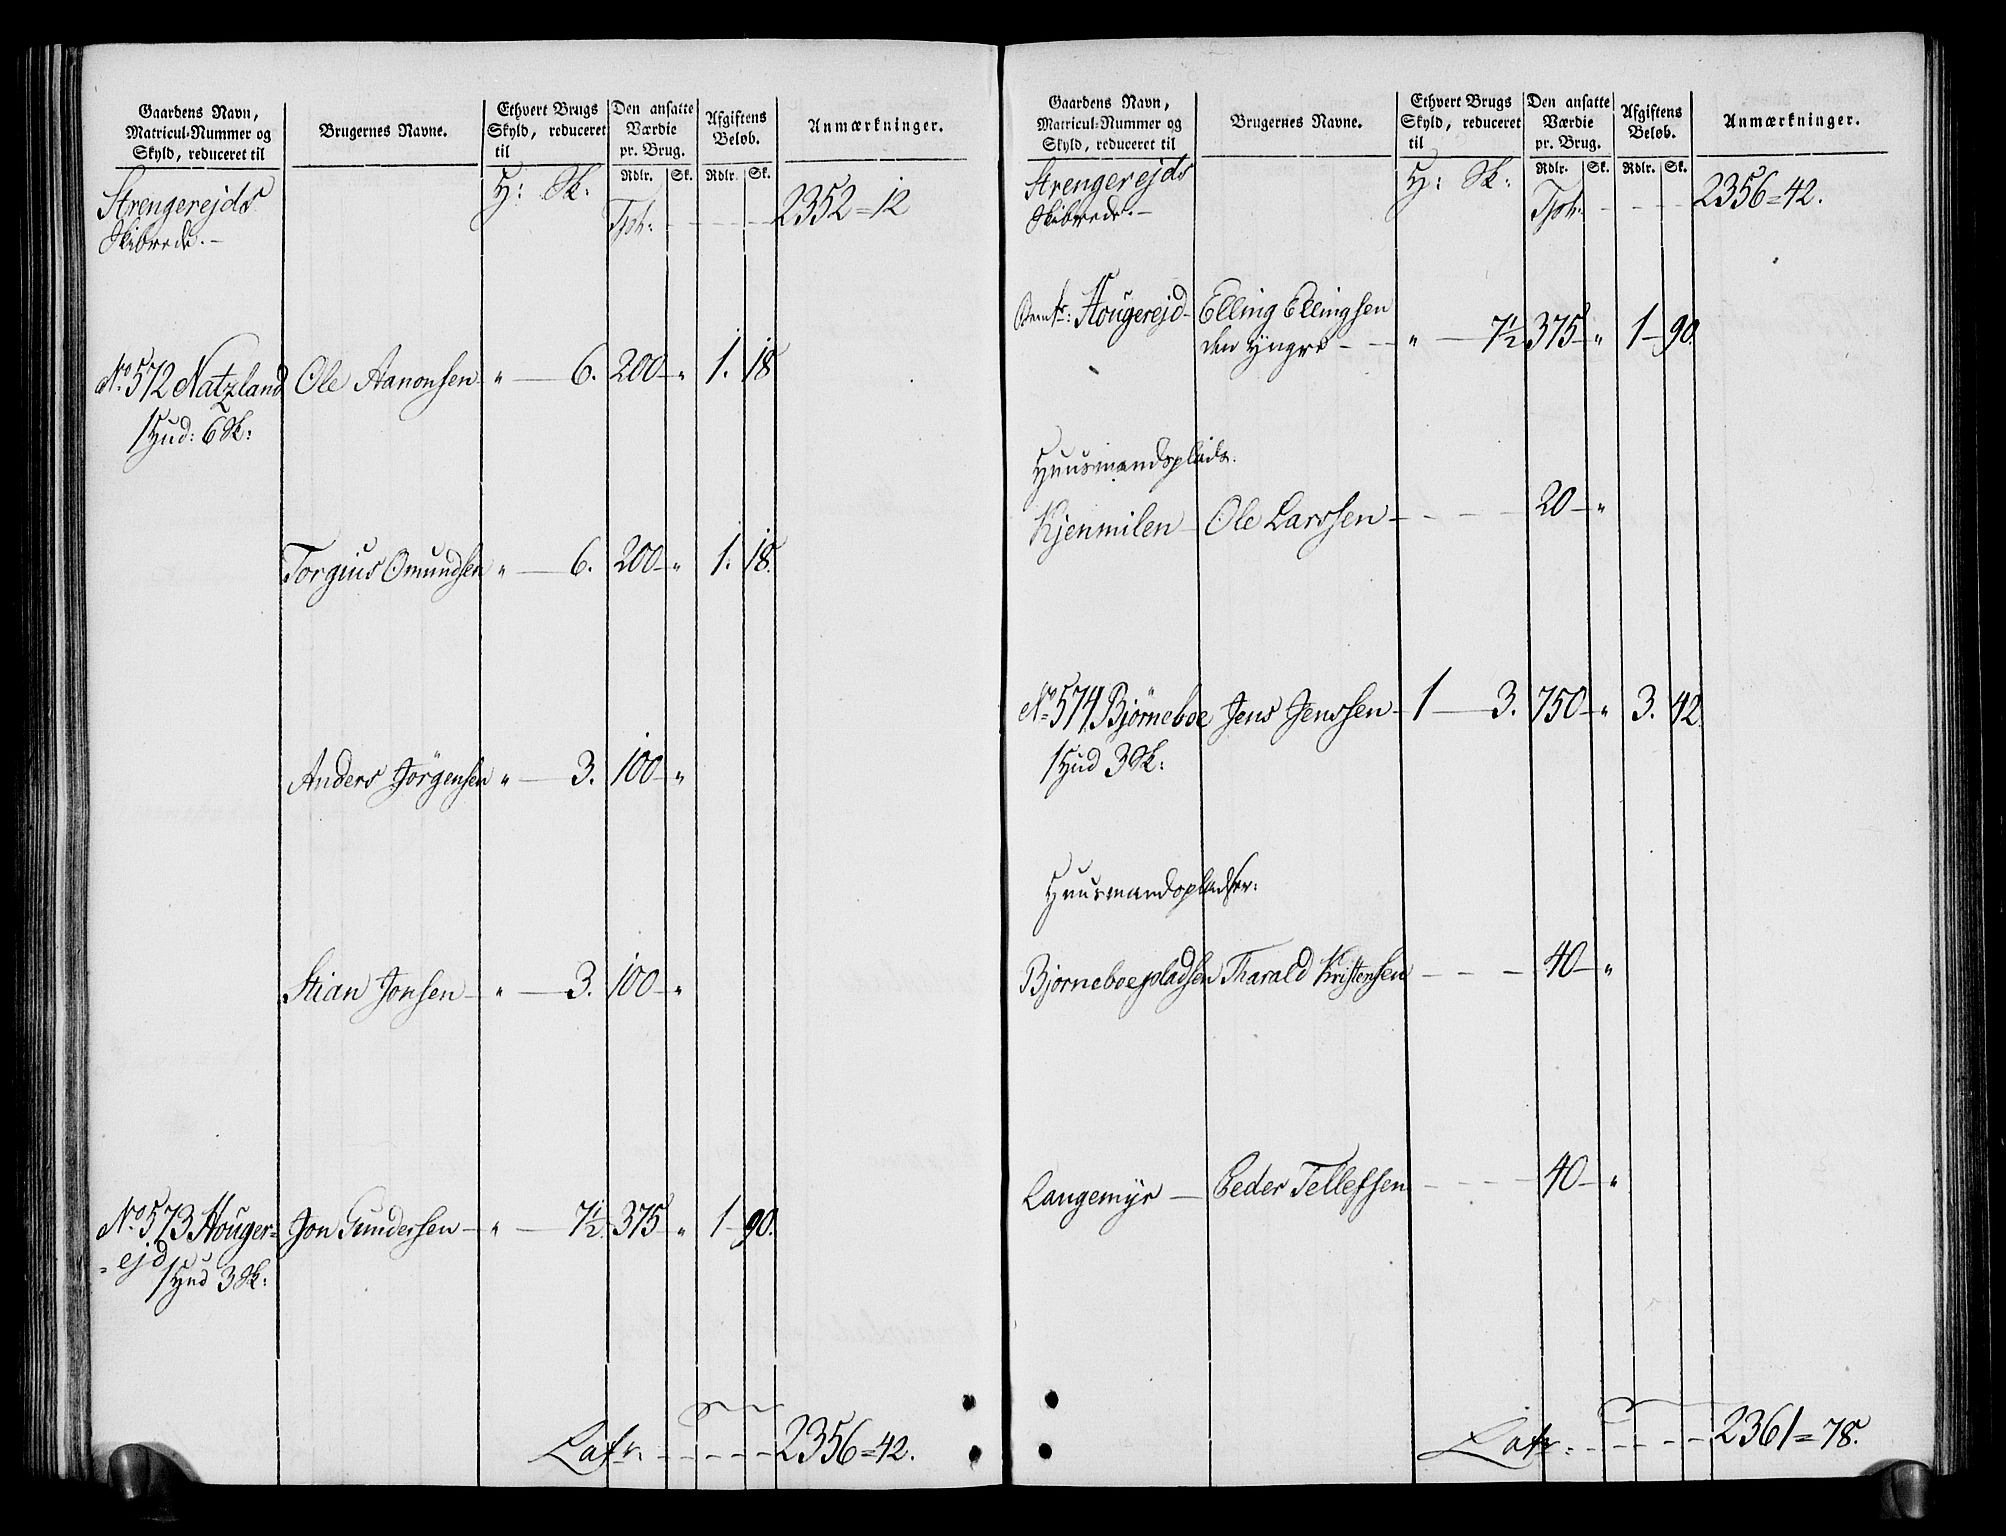 Gaardens Navn,
Matricul-Nummer og
Skyld, reduceret til
Brugernes Navne.
Ethvert Brugs
Skyld, reduceret
til
Den ansatte
Værdie
pr. Brug.
Rdlr. Sk.
Afgiftens
Beløb.
Rdlr. Sk.
Anmærkninger.
Strengerejds
Skibrede.-
H: Sk:
Tpt: - - - - 2352 = 12
No. 572 Natzland Ole Aanonsen „ — 6. 200 — „ 1. 18
1 Hud: 6 Sk:
Torgius Omundsen „ — 6. 200 — „ 1. 18.
Anders Jörgensen „ — 3. 100 — „
Stian Jonsen — „ — 3. 100 — „
No. 573 Houger= Jon Gundersen — „ — 7½ 375 — „ 1 — 90.
= ejd
1 Hud 3 Sk:
Latr: - - - - - 2356 = 42.
Gaardens Navn,
Matricul-Nummer og
Skyld, reduceret til
Brugernes Navne.
Ethvert Brugs
Skyld, reduceret
til
Den ansatte
Værdie
pr. Brug.
Rdlr. Sk.
Afgiftens
Beløb.
Rdlr. Sk.
Anmærkninger.
Strengerejds
Skibrede.-
H: Sk:
Tpt: - - - - 2356 = 42.
Hougerejd - Elling Ellingsen
den yngre - - „ — 7½ 375 — „ 1 — 90
Huusmandsplads.
Kjenmilen — Ole Larssen - - - - 20 — „
No. 574 Bjørneboe Jens Jenssen - 1 — 3. 750 — „ 3. 42
1 Hud 3 Sk:
Huusmandspladser:
Bjorneboepladsen Tharald Kristensen - - - 40 — „
Langemyr — Peder Tellefsen - - - - 40 — „
Latr: - - - - - 2361 = 78.